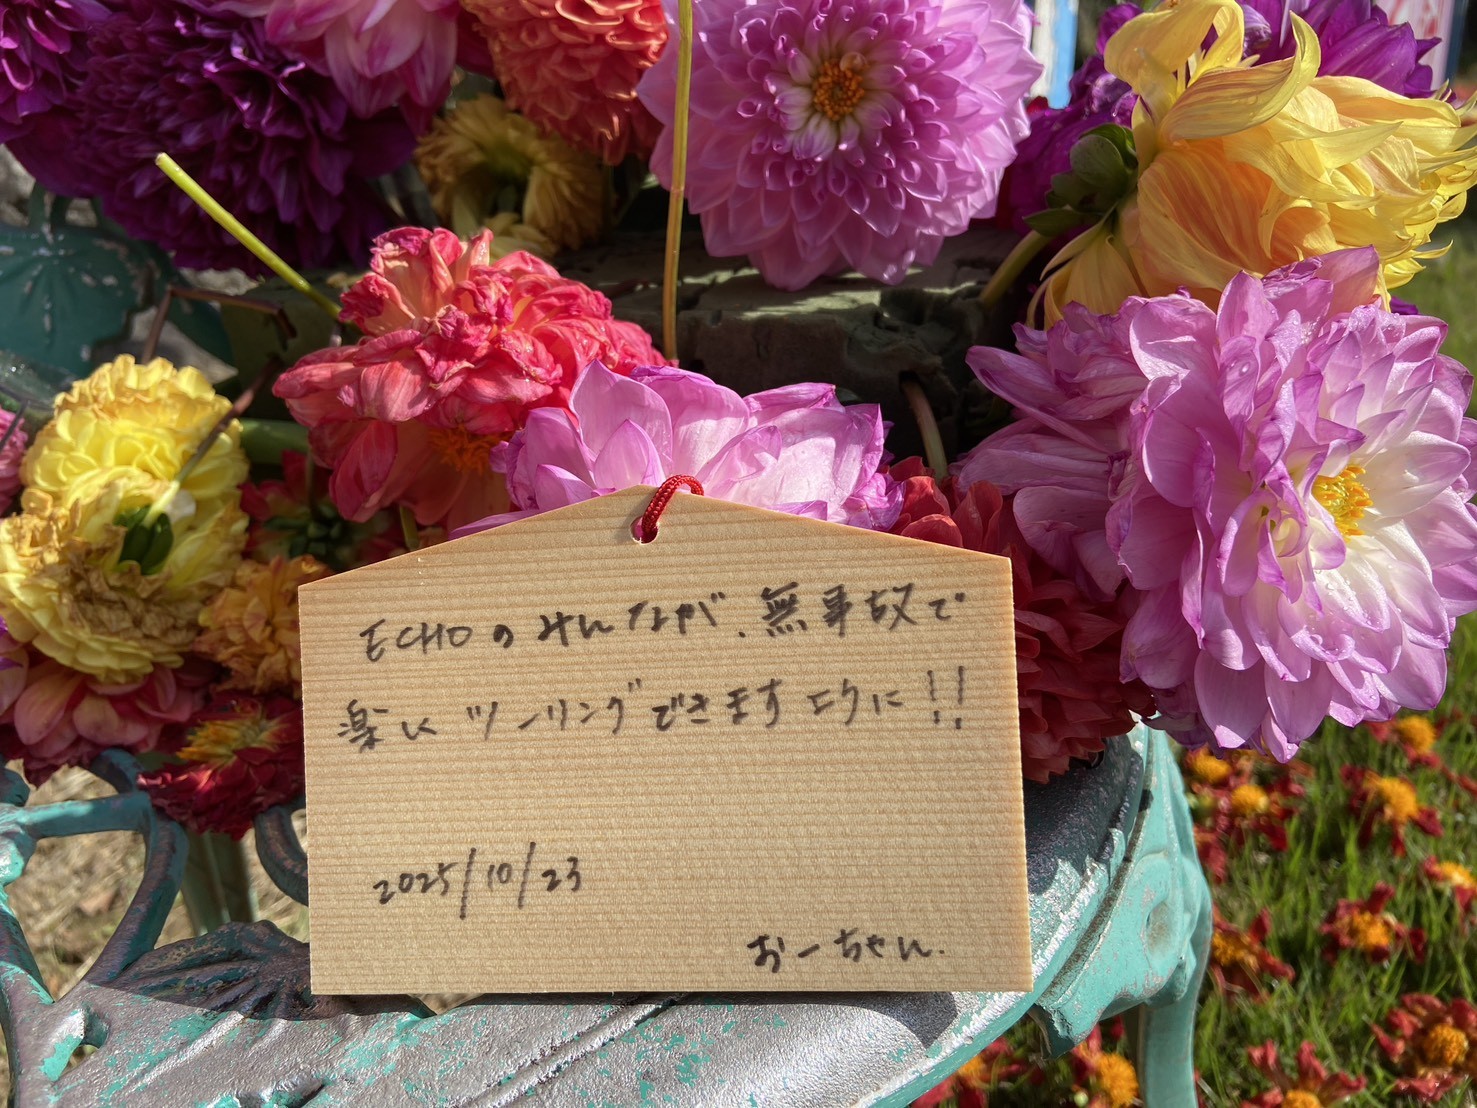 ECHOのみんなが、無事故で
楽しいツーリングできますように!!
2025/10/23
おーちゃん.